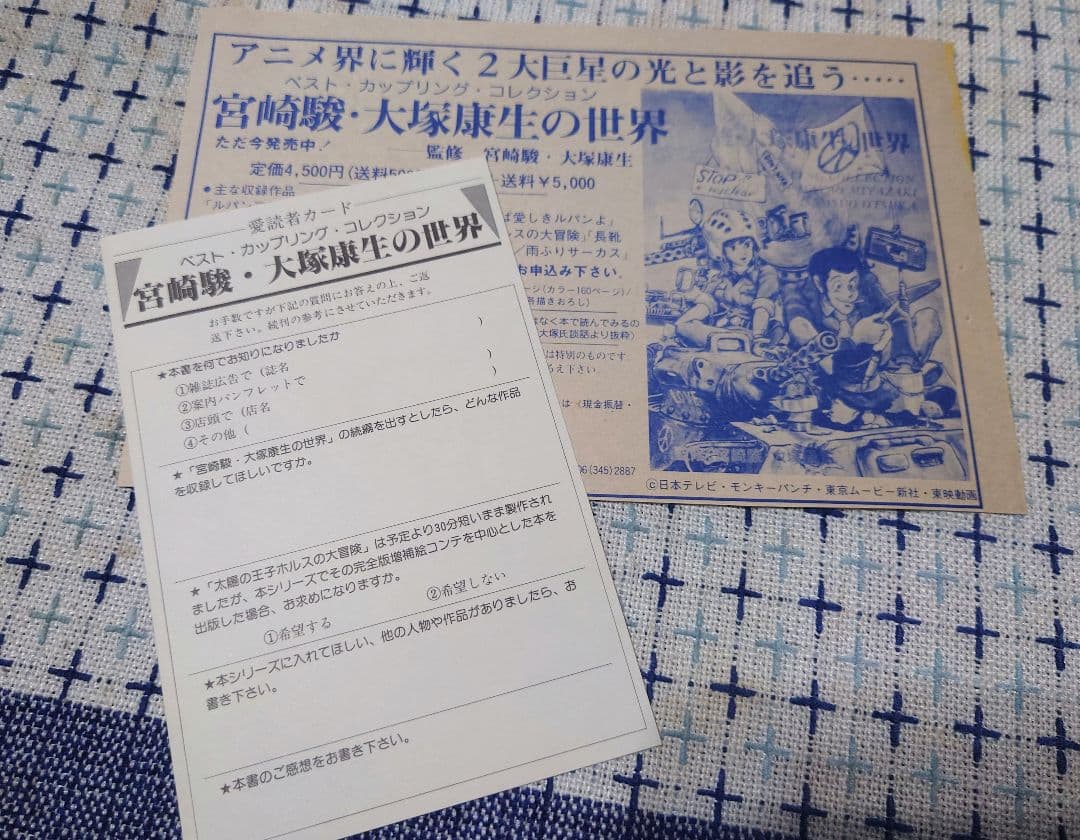 アニメ界に輝く2大巨星の光と影を追う‥‥‥
ベスト・カップリング・コレクション
宮崎駿・大塚康生の世界
ただ今発売中!
監修 宮崎駿・大塚康生
定価4,500円(送料50
送料¥5,000
●主な収録作品
「ルパン
ば愛しきルパンよ」
ルスの大冒険」「長靴
/雨ふりサーカス」
お申込み下さい。
ージ(カラー160ページ)/
描きおろし)
はなく本で読んでみるの
大塚氏談話より抜粋)
は特別のものです
え下さい
は(現金振替・
06(345)2887
STOP
nuclear
©日本テレビ・モンキーパンチ・東京ムービー新社・東映動画
愛読者カード
ベスト・カップリング・コレクション
宮崎駿・大塚康生の世界
お手数ですが下記の質問にお答えの上、ご返
送下さい。続刊の参考にさせていただきます。
★本書を何でお知りになりましたか
①雑誌広告で(誌名 )
②案内パンフレットで
③店頭で(店名 )
④その他( )
★「宮崎駿・大塚康生の世界」の続篇を出すとしたら、どんな作品
を収録してほしいですか。
★「太陽の王子ホルスの大冒険」は予定より30分短いまま製作され
ましたが、本シリーズでその完全版増補絵コンテを中心とした本を
出版した場合、お求めになりますか。
①希望する ②希望しない
★本シリーズに入れてほしい、他の人物や作品がありましたら、お
書き下さい。
★本書のご感想をお書き下さい。